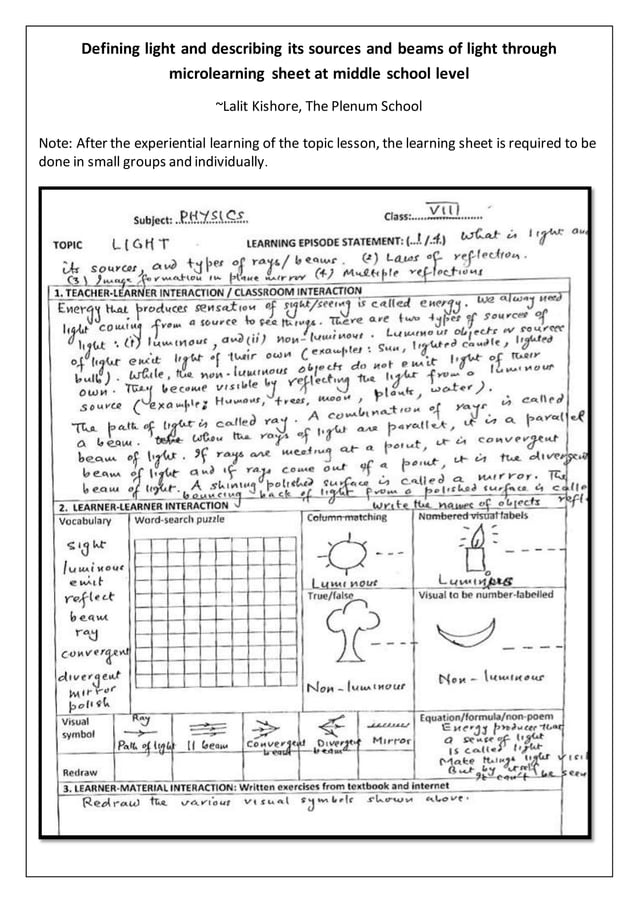 Defining light and describing its sources and beams of light through
microlearning sheet at middle school level
~Lalit Kishore, The Plenum School
Note: After the experiential learning of the topic lesson, the learning sheet is required to be
done in small groups and individually.
Subject: PHYSICS Class: VIII
TOPIC LIGHT LEARNING EPISODE STATEMENT: (..1 /.4.) What is light and
its sources, and types of rays/ beams. (2) Laws of reflection.
(3) Image formation in plane mirror (4) Multiple reflections
1. TEACHER-LEARNER INTERACTION / CLASSROOM INTERACTION
Energy that produces sensation of sight/seeing is called energy. We alway need
light coming from a source to see things. There are two types of sources of
light : (i) luminous, and (ii) non-luminous. Luminous objects or sources
of light emit light of their own (examples: Sun, lighted candle, lighted
bulb). While, the non-luminous objects do not emit light of their
own. They become visible by reflecting the light from a luminous
source (example: Humous, trees, moon, plants, water).
The path of light is called ray. A combination of rays is called
a beam. When the rays of light are parallet, it is a parallel
beam of light. If rays are meeting at a point, it is convergent
beam of light and if rays come out of a point, it is the divergen
beam of light. A shining polished surface is called a mirror. The
bouncing back of light from a polished surface is calle
refl
2. LEARNER-LEARNER INTERACTION Write the names of objects
Vocabulary Word-search puzzle Column-matching Numbered visual labels
sight
luminous
emit
reflect
beam
ray
convergent
divergent
mirror
polish
Luminous
Luminous
True/false Visual to be number-labelled
Non-luminous
Non-luminous
Visual
symbol
Ray
Path of light || beam Convergent beam Divergent beam Mirror
Equation/formula/non-poem
Energy producer that
a sense of light
Is called light
Make things light visi
But by itself
It can't be seen
Redraw
3. LEARNER-MATERIAL INTERACTION: Written exercises from textbook and internet
Redraw the various visual symbols shown above.